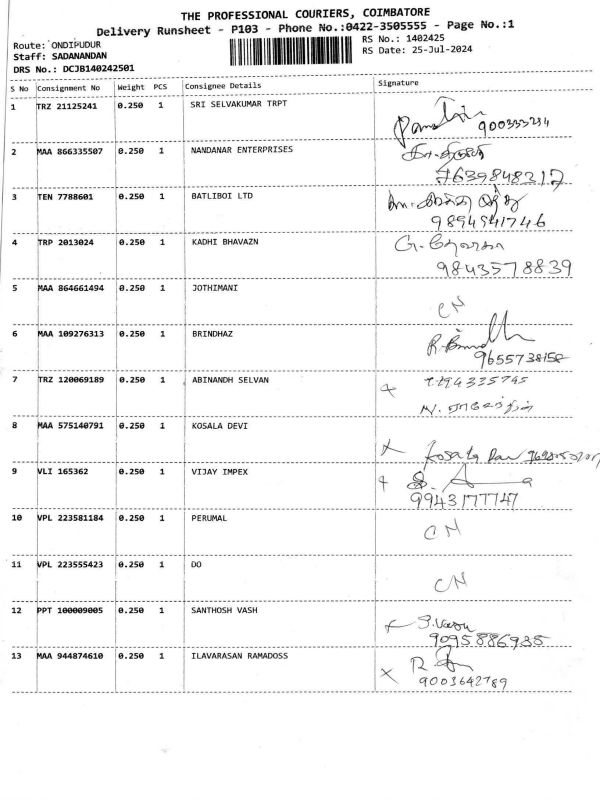 THE PROFESSIONAL COURIERS, COIMBATORE
Delivery Runsheet - P103 - Phone No.:0422-3505555 - Page No.:1
Route: ONDIPUDUR
RS No.: 1402425
Staff: SADANANDAN
RS Date: 25-Jul-2024
DRS No.: DCJB140242501
S No Consignment No Weight PCS Consignee Details Signature
1 TRZ 21125241 0.250 1 SRI SELVAKUMAR TRPT
2 MAA 866335507 0.250 1 NANDANAR ENTERPRISES
7639848317
3 TEN 7788601 0.250 1 BATLIBOI LTD
9894541746
4 TRP 2013024 0.250 1 KADHI BHAVAZN
9843578839
5 MAA 864661494 0.250 1 JOTHIMANI
CN
6 MAA 109276313 0.250 1 BRINDHAZ
9655738158
7 TRZ 120069189 0.250 1 ABINANDH SELVAN
8 MAA 575140791 0.250 1 KOSALA DEVI
9 VLI 165362 0.250 1 VIJAY IMPEX
9943177747
10 VPL 223581184 0.250 1 PERUMAL
CN
11 VPL 223555423 0.250 1 DO
CN
12 PPT 100009005 0.250 1 SANTHOSH VASH
S.Vasu
9095886935
13 MAA 944874610 0.250 1 ILAVARASAN RAMADOSS
9003642789